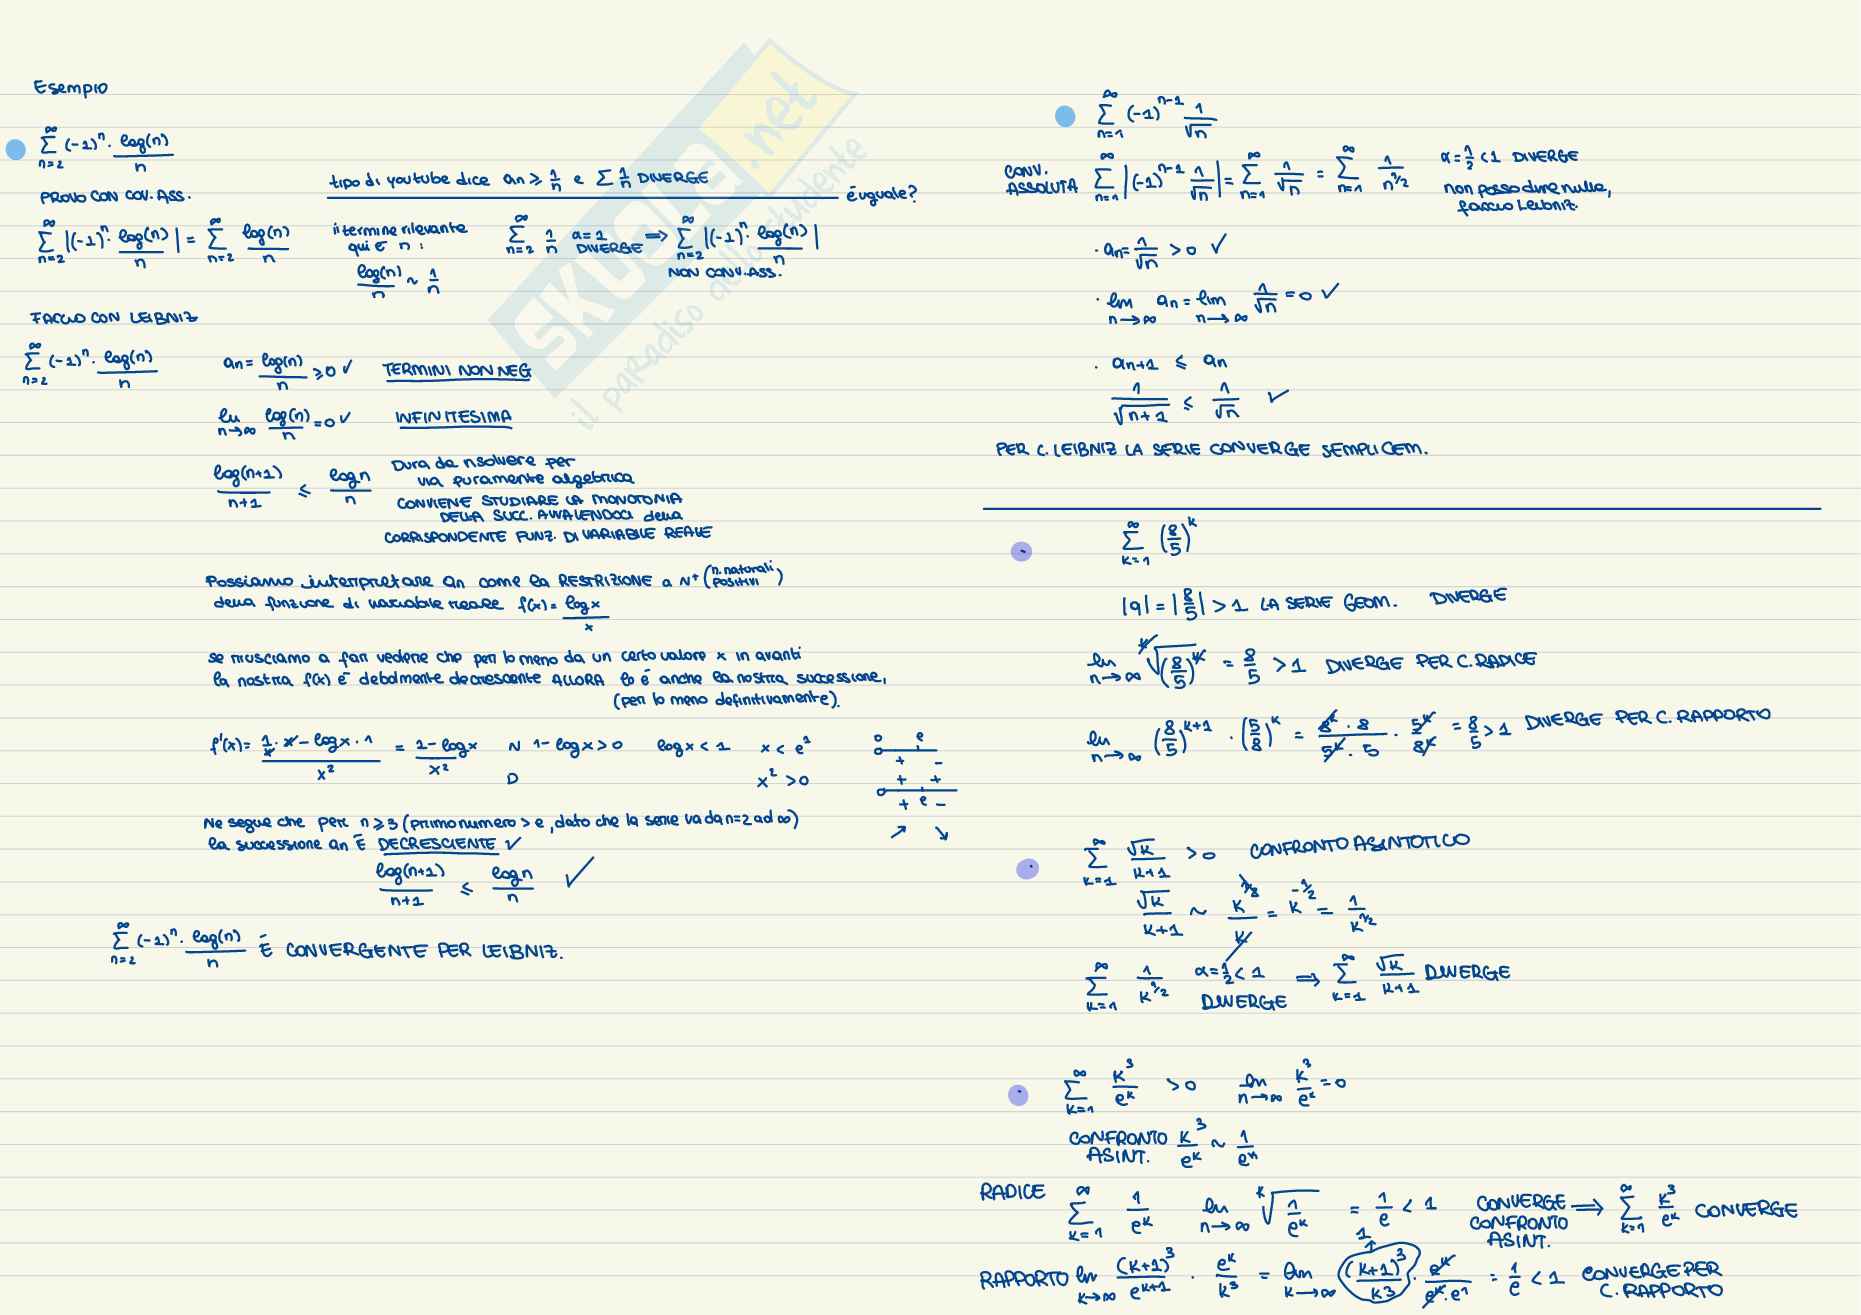 Esempio
∑_{n=2}^{∞} (-1)^n · log(n)/n
PROVO CON COV. ASS.
tipo di youtube dice an ≥ 1/n e ∑ 1/n DIVERGE
è uguale?
∑_{n=2}^{∞} |(-1)^n · log(n)/n| = ∑_{n=2}^{∞} log(n)/n
il termine rilevante
qui è n :
log(n)/n ~ 1/n
∑_{n=2}^{∞} 1/n α=1 DIVERGE ⟹ ∑_{n=2}^{∞} |(-1)^n · log(n)/n|
NON CONV. ASS.
FACCIO CON LEIBNIZ
∑_{n=2}^{∞} (-1)^n · log(n)/n
an = log(n)/n ≥ 0 ✓ TERMINI NON NEG
lim_{n→∞} log(n)/n = 0 ✓ INFINITESIMA
log(n+1)/(n+1) ≤ log n/n
Dura da risolvere per
via puramente algebrica
CONVIENE STUDIARE LA MONOTONIA
DELLA SUCC. AVVALENDOCI della
CORRISPONDENTE FUNZ. DI VARIABILE REALE
Possiamo interpretare an come la RESTRIZIONE a N⁺ (n. naturali positivi)
della funzione di variabile reale f(x) = log x/x
se riusciamo a far vedere che per lo meno da un certo valore x in avanti
la nostra f(x) è debolmente decrescente ALLORA lo è anche la nostra successione,
(per lo meno definitivamente).
f'(x) = (1/x · x - log x · 1)/x² = (1 - log x)/x² N 1 - log x > 0 log x < 1 x < e¹
D x² > 0
0 e
+ -
+ +
+ e -
↗ ↘
Ne segue che per n ≥ 3 (primo numero > e, dato che la serie va da n=2 ad ∞)
la successione an È DECRESCIENTE ✓
log(n+1)/(n+1) ≤ log n/n ✓
∑_{n=2}^{∞} (-1)^n · log(n)/n È CONVERGENTE PER LEIBNIZ.
∑_{n=1}^{∞} (-1)^{n-1} 1/√n
CONV.
ASSOLUTA ∑_{n=1}^{∞} |(-1)^{n-1} 1/√n| = ∑_{n=1}^{∞} 1/√n = ∑_{n=1}^{∞} 1/n^{1/2}
α = 1/2 < 1 DIVERGE
non posso dire nulla,
faccio Leibniz.
· an = 1/√n > 0 ✓
· lim_{n→∞} an = lim_{n→∞} 1/√n = 0 ✓
· an+1 ≤ an
1/√(n+1) ≤ 1/√n ✓
PER C. LEIBNIZ LA SERIE CONVERGE SEMPLICEM.
∑_{k=1}^{∞} (8/5)^k
|q| = |8/5| > 1 LA SERIE GEOM. DIVERGE
lim_{n→∞} ᵏ√((8/5)^k) = 8/5 > 1 DIVERGE PER C. RADICE
lim_{n→∞} (8/5)^{k+1} · (5/8)^k = (8^k · 8)/(5^k · 5) · 5^k/8^k = 8/5 > 1 DIVERGE PER C. RAPPORTO
∑_{k=1}^{∞} √k/(k+1) > 0 CONFRONTO ASINTOTICO
√k/(k+1) ~ k^{1/2}/k = k^{-1/2} = 1/k^{1/2}
∑_{k=1}^{∞} 1/k^{1/2} α = 1/2 < 1 DIVERGE ⟹ ∑_{k=1}^{∞} √k/(k+1) DIVERGE
∑_{k=1}^{∞} k³/e^k > 0 lim_{n→∞} k³/e^k = 0
CONFRONTO
ASINT. k³/e^k ~ 1/e^k
RADICE ∑_{k=1}^{∞} 1/e^k lim_{n→∞} ᵏ√(1/e^k) = 1/e < 1 CONVERGE CONFRONTO ASINT. ⟹ ∑_{k=1}^{∞} k³/e^k CONVERGE
1
RAPPORTO lim_{k→∞} (k+1)³/e^{k+1} · e^k/k³ = lim_{k→∞} (k+1)³/k³ · e^k/(e^k · e¹) = 1/e < 1 CONVERGE PER C. RAPPORTO
SKUOLA.net
il paradiso dello studente